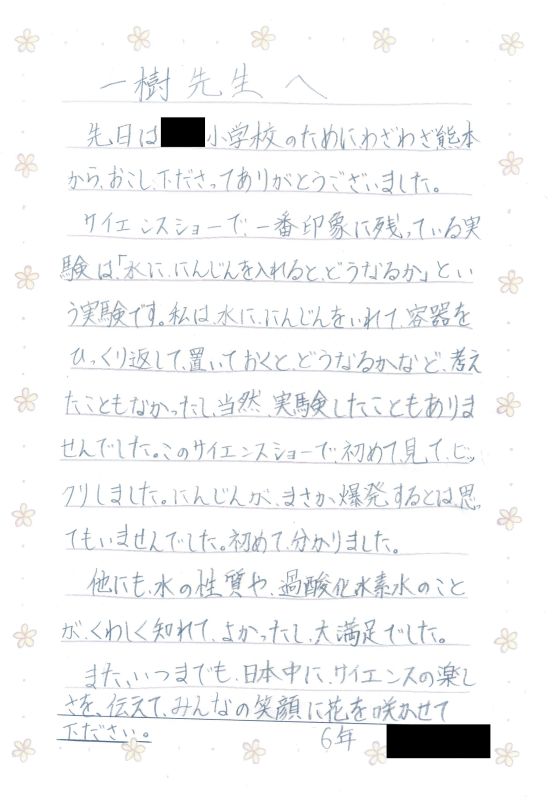 一樹先生へ
先日は 小学校のためにわざわざ熊本
から、おこし下ださってありがとうございました。
サイエンスショーで、一番印象に残っている実
験は、「水に、にんじんを入れると、どうなるか」とい
う実験です。私は、水に、にんじんをいれて、容器を
ひっくり返して、置いておくと、どうなるかなど、考え
たこともなかったし、当然、実験したこともありま
せんでした。このサイエンスショーで、初めて、見て、ビッ
クリしました。にんじんが、まさか、爆発するとは、思
てもいませんでした。初めて、分かりました。
他にも、水の性質や、過酸化水素水のこと
が、くわしく知れて、よかったし、大満足でした。
また、いつまでも、日本中に、サイエンスの楽し
さを、伝えて、みんなの笑顔に花を咲かせて
下ださい。 6年